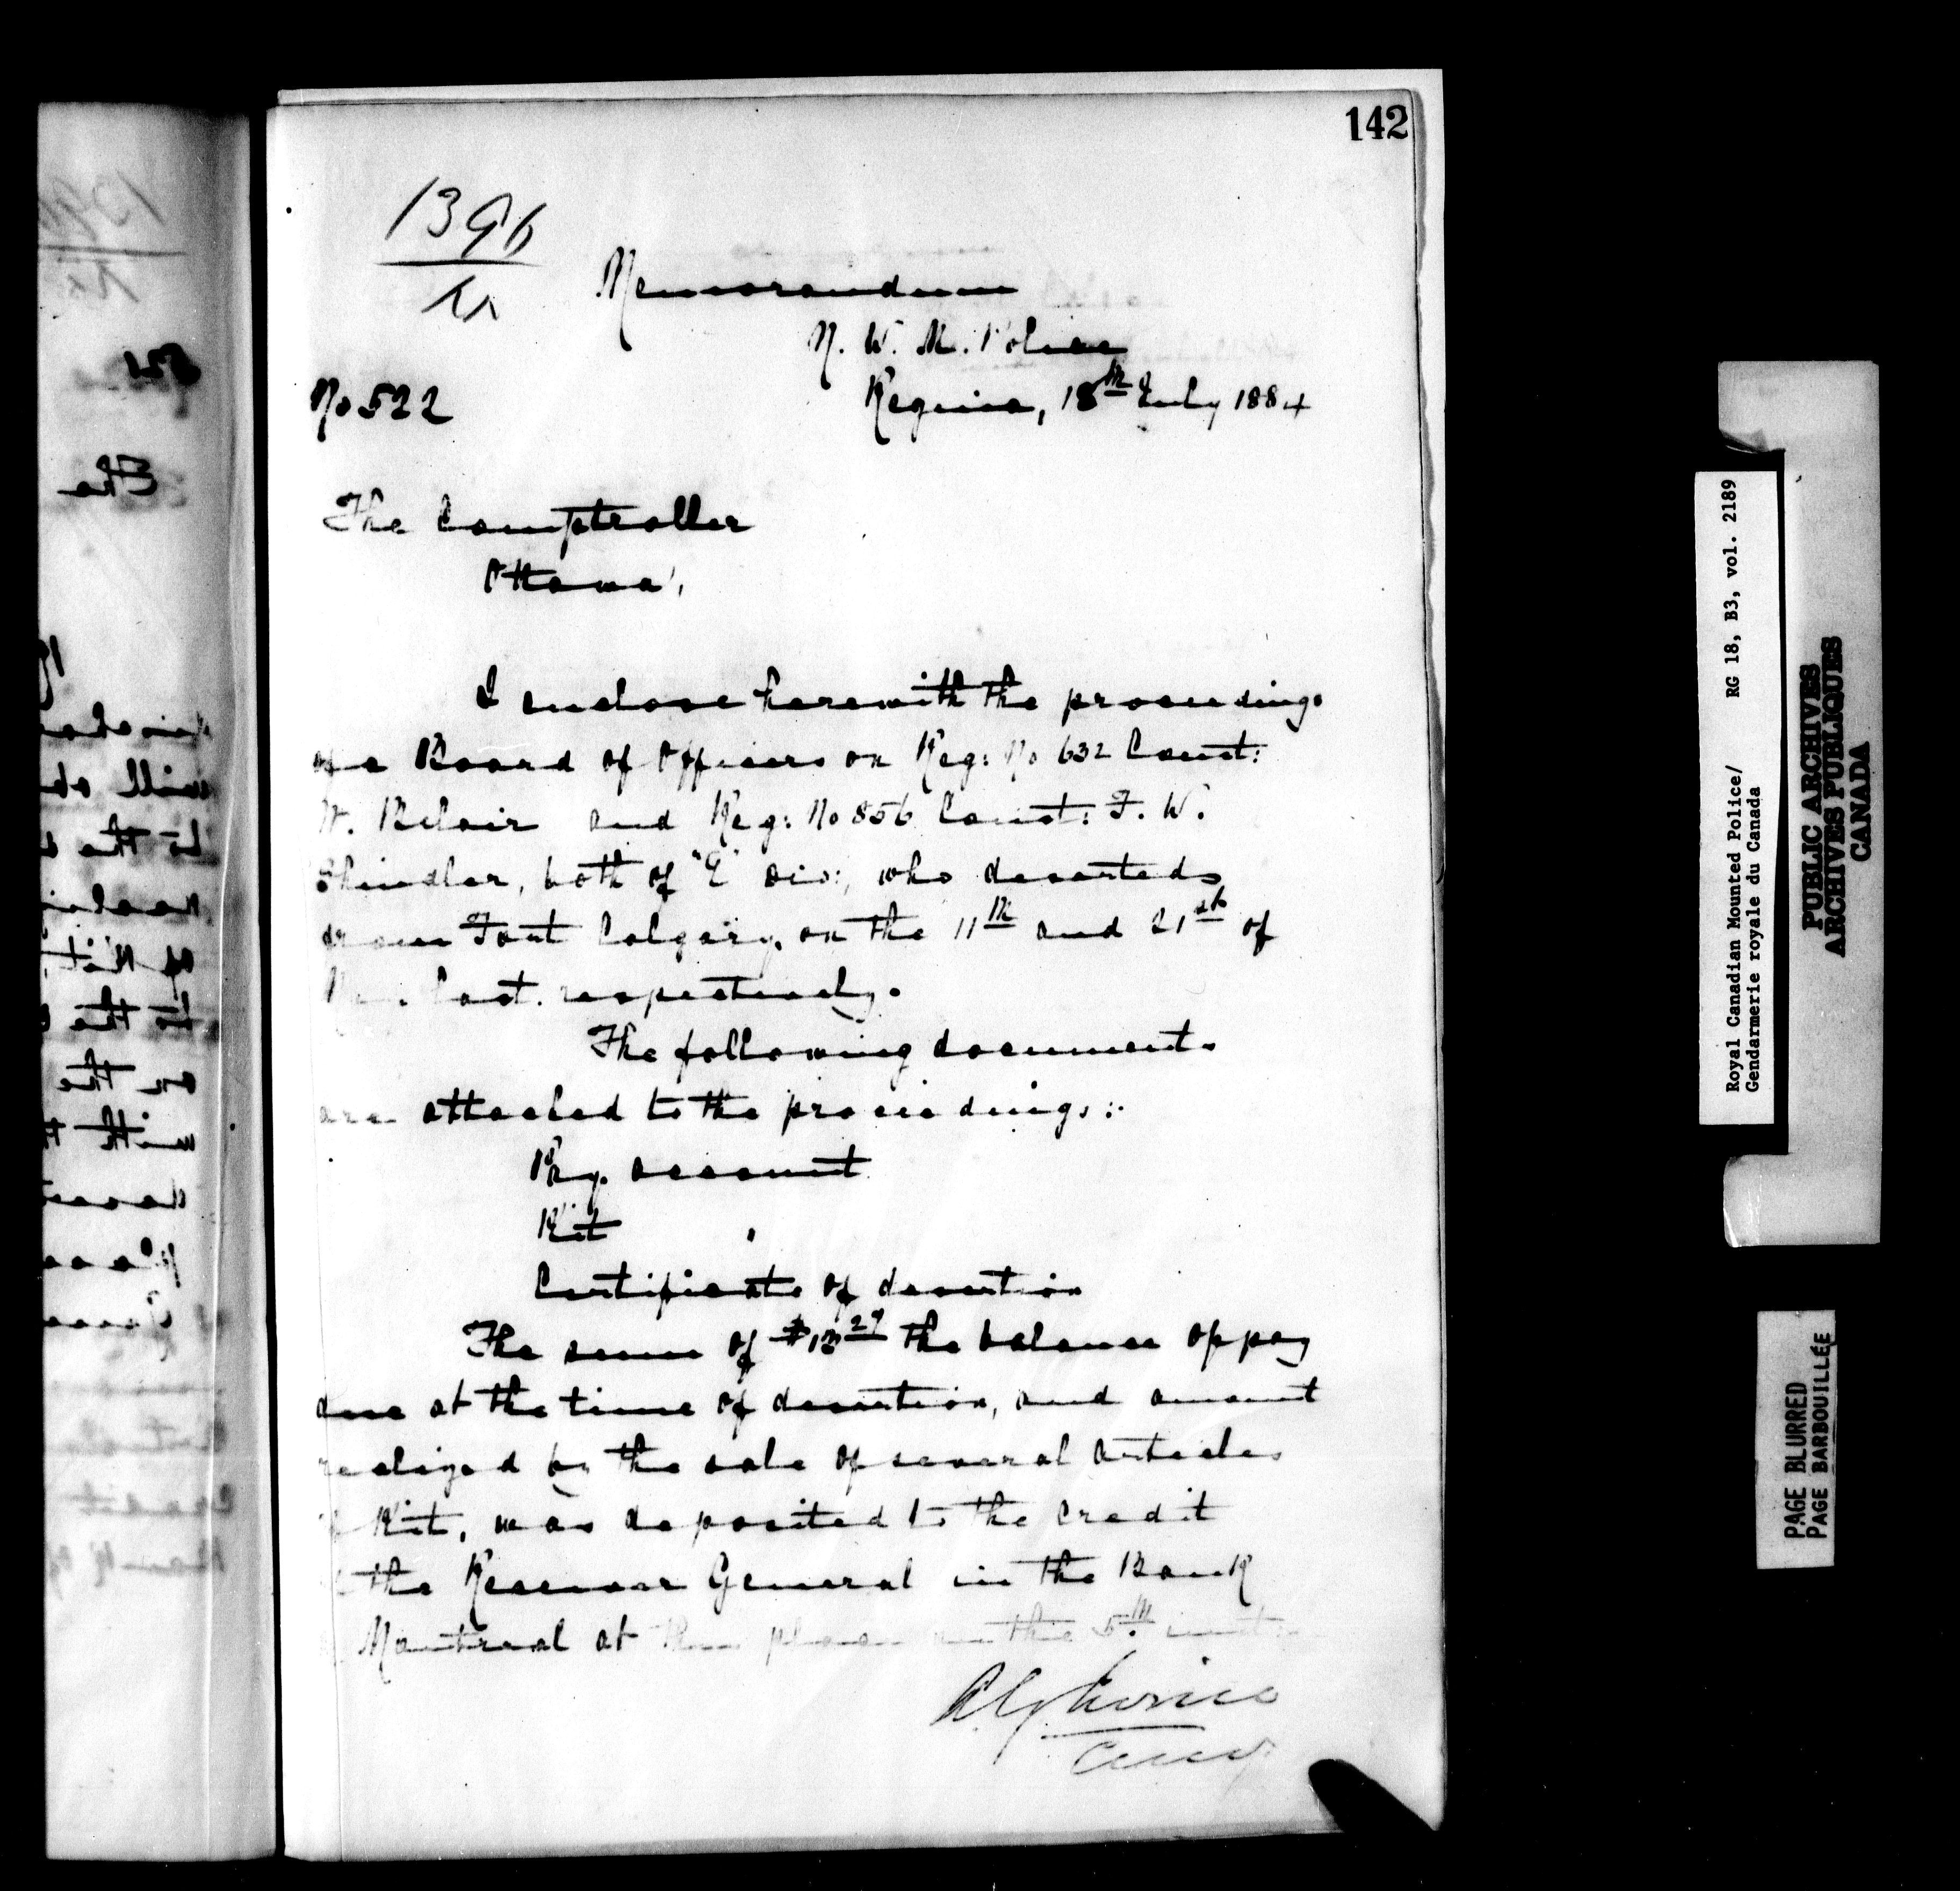 142
1396
Memorandum
N. W. M. Police
No 522
Regina, 18th July 1884
The Comptroller
Ottawa,
I enclose herewith the proceedings
of a Board of Officers on Reg: No 632 Const:
W. Belair and Reg: No 856 Const: F. W.
Shindler, both of "E" Div:, who deserted
from Fort Calgary, on the 11th and 21st of
last. respectively.
The following documents
are attached to the proceedings:-
Pay account
Kit "
Certificate of desertion
The sum of the balance of pay
due at the time of desertion, and amount
realized by the sale of several articles
of Kit, was deposited to the credit
the Receiver General in the Bank
Montreal at this place on the 5th inst:
Royal Canadian Mounted Police/ RG 18, B3, vol. 2189
Gendarmerie royale du Canada
PUBLIC ARCHIVES
ARCHIVES PUBLIQUES
CANADA
PAGE BLURRED
PAGE BARBOUILLÉE